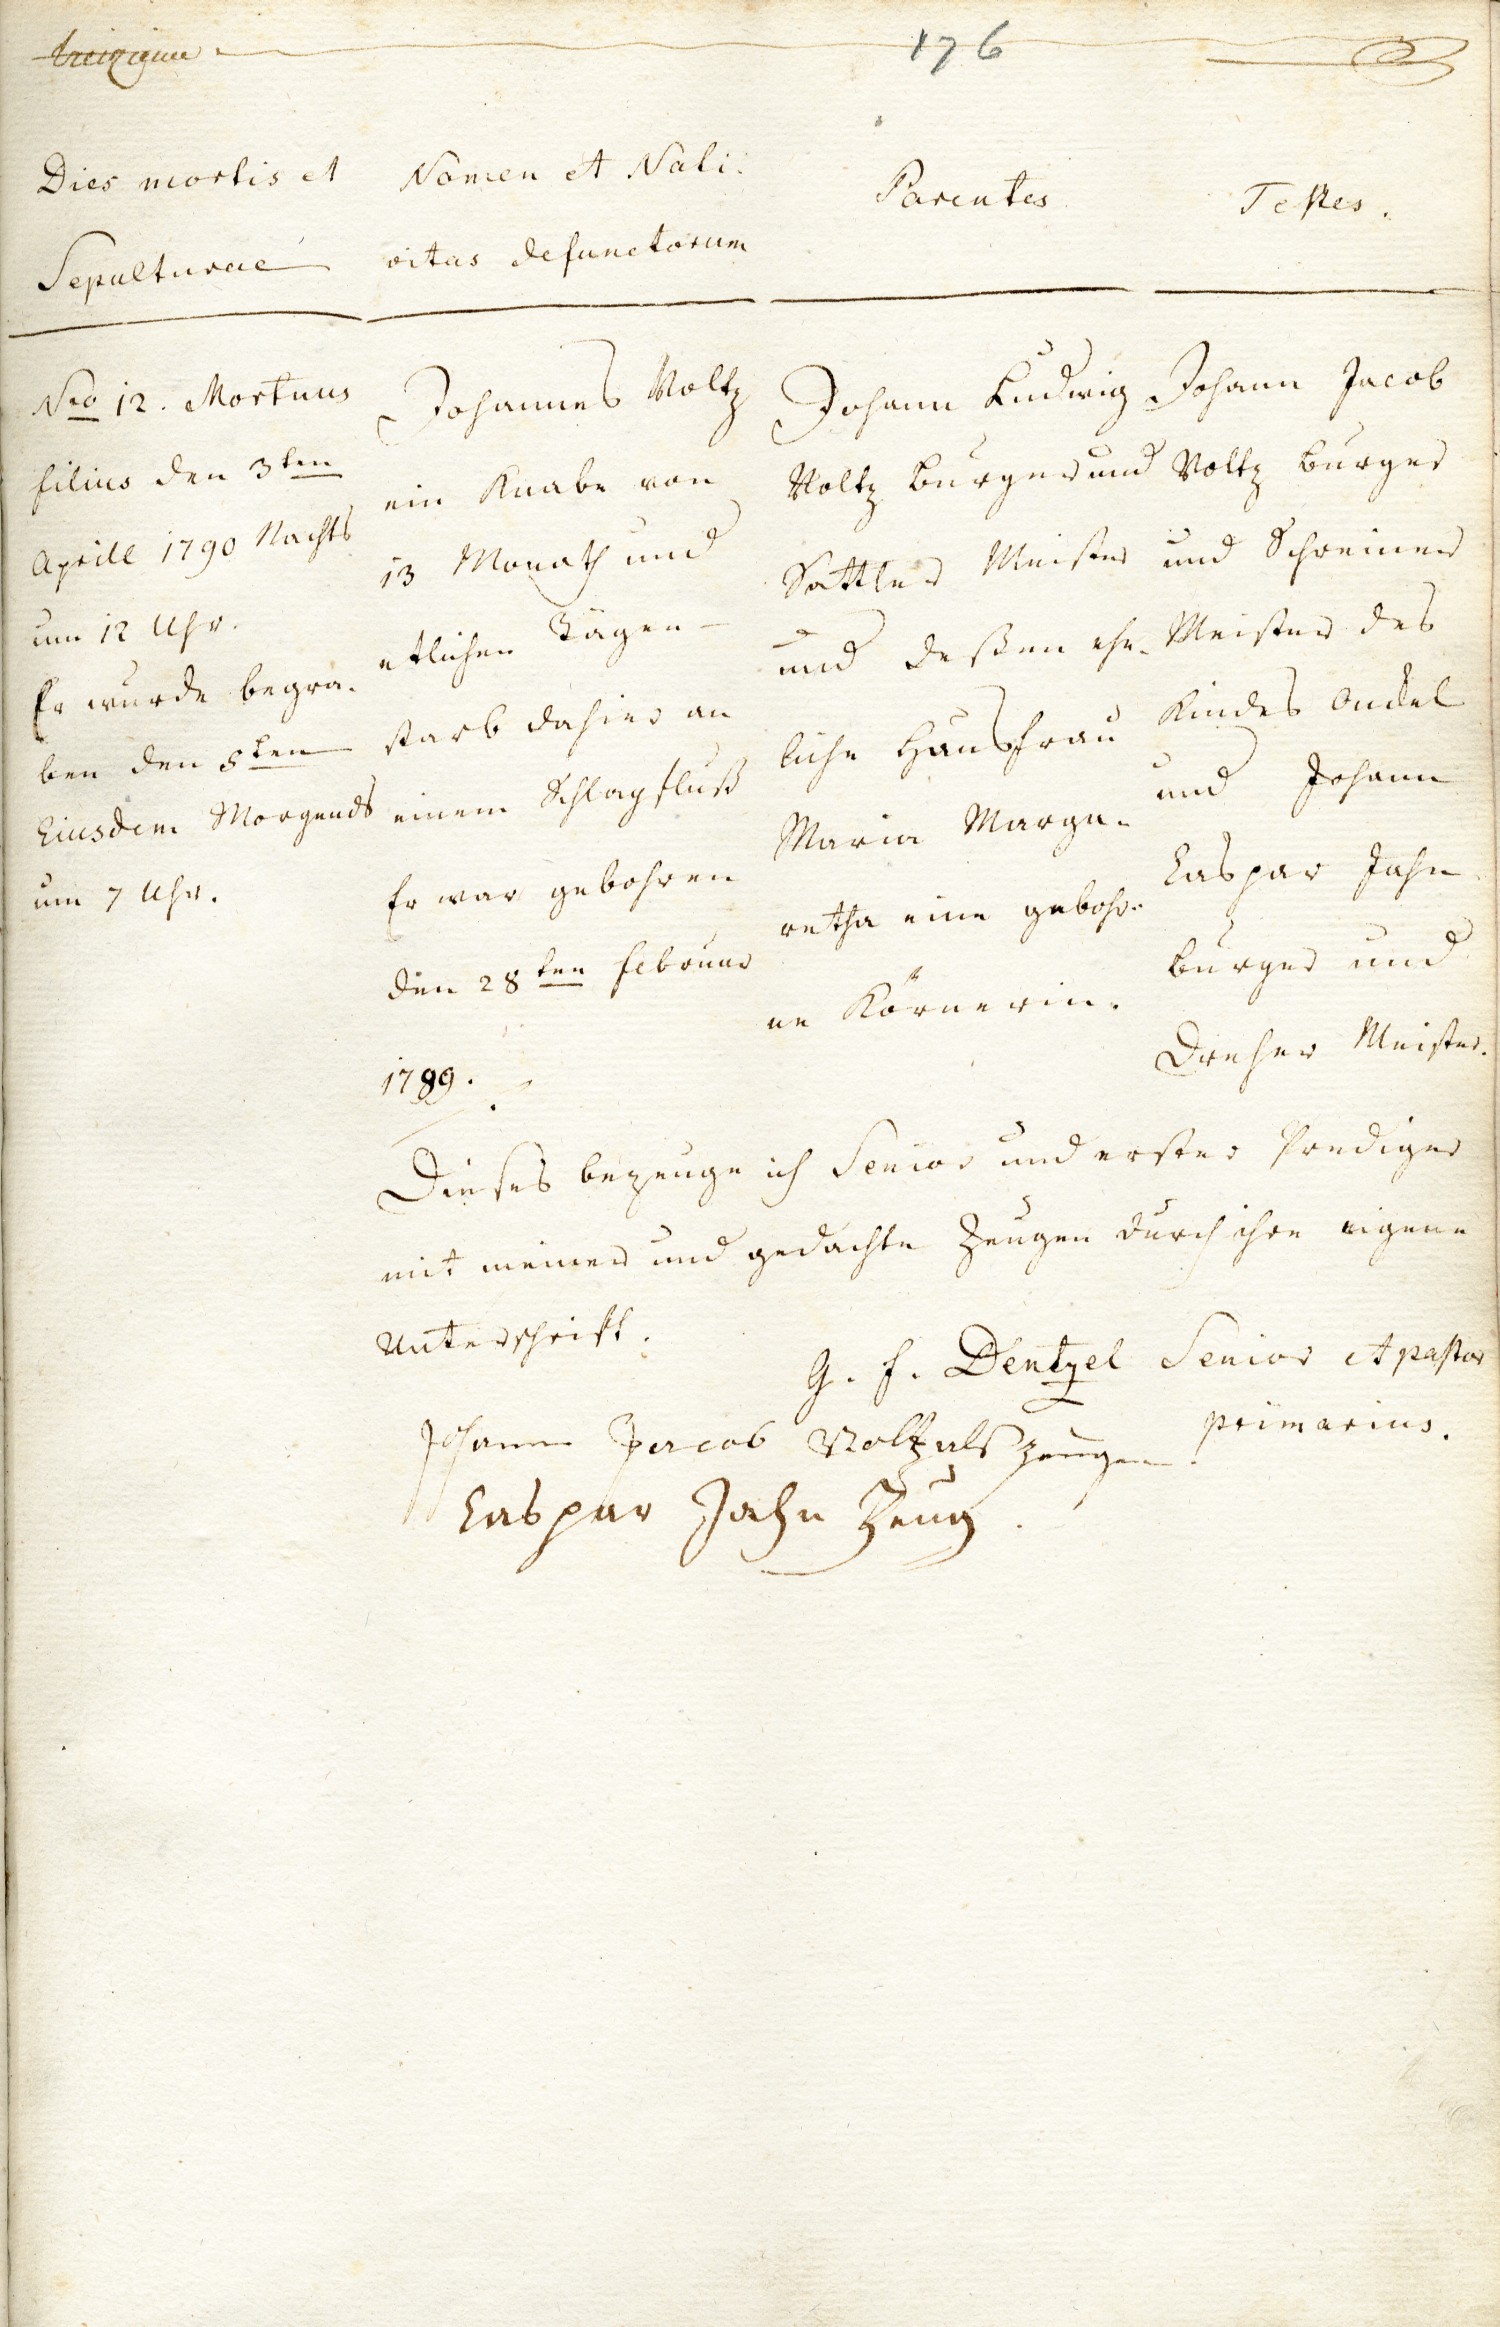 176
Dies mortis et
Sepulturae
Nomen et Nati-
vitas defunctorum
Parentes
Testes.
Nro 12. Mortuus
filius den 3ten
Aprill 1790 Nachts
um 12 Uhr.
Er wurde begra-
ben den 5ten
Eiusdem Morgends
um 7 Uhr.
Johannes Voltz
ein Knabe von
13 Monath und
etlichen Tägen
starb dahier an
einem Schlagfluß
Er war gebohren
den 28ten Februar
1789.
Johann Ludwig
Voltz Burger und
Sattler Meister
und deßen ehe-
liche Hausfrau
Maria Marga-
retha eine gebohr-
ne Körnerin.
Johann Jacob
Voltz Burger
und Schreiner
Meister des
Kindes Onckel
und Johann
Caspar Jahn
Burger und
Dreher Meister.
Dieses bezeuge ich Senior und erster Prediger
mit meiner und gedachte Zeugen durch ihre eigene
Unterschrift.
G. F. Dentzel Senior et pastor
primarius.
Johann Jacob Voltz als zeugen.
Caspar Jahn Zeug.